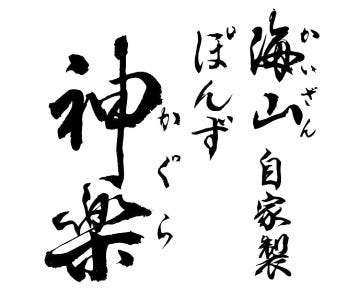 海山自家製
かいざん
ぽんず
神楽
かぐら